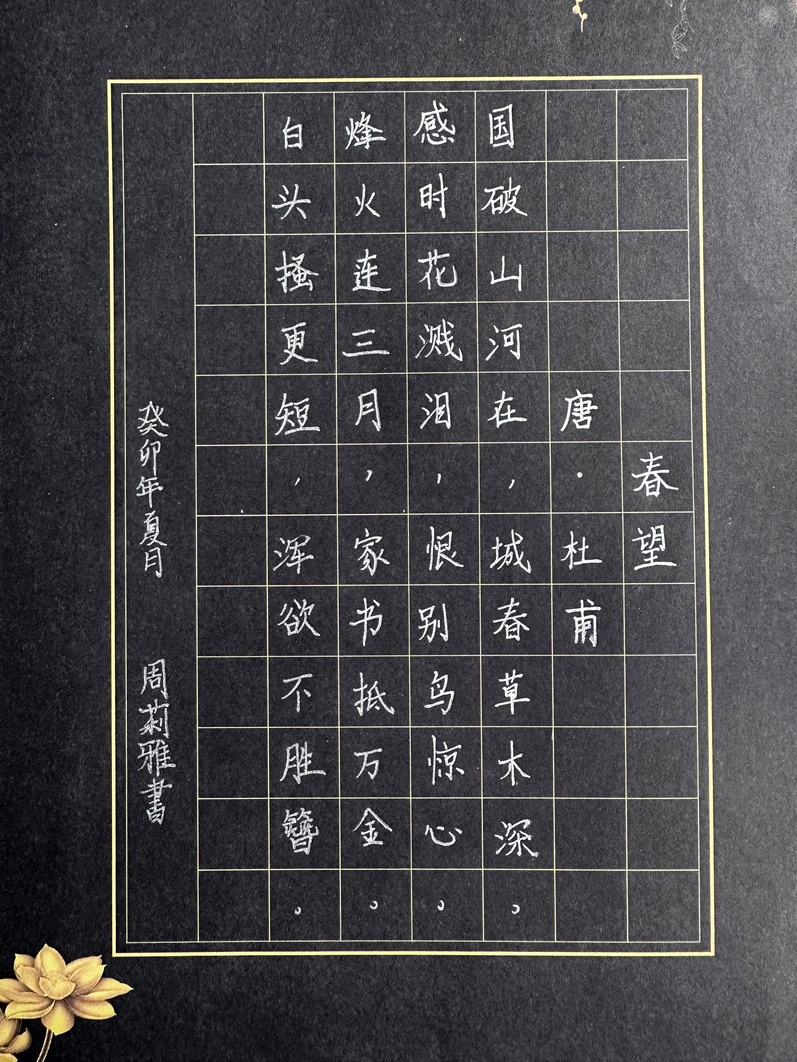 春望
唐·杜甫
国破山河在，城春草木深。
感时花溅泪，恨别鸟惊心。
烽火连三月，家书抵万金。
白头搔更短，浑欲不胜簪。
癸卯年夏月 周莉雅書